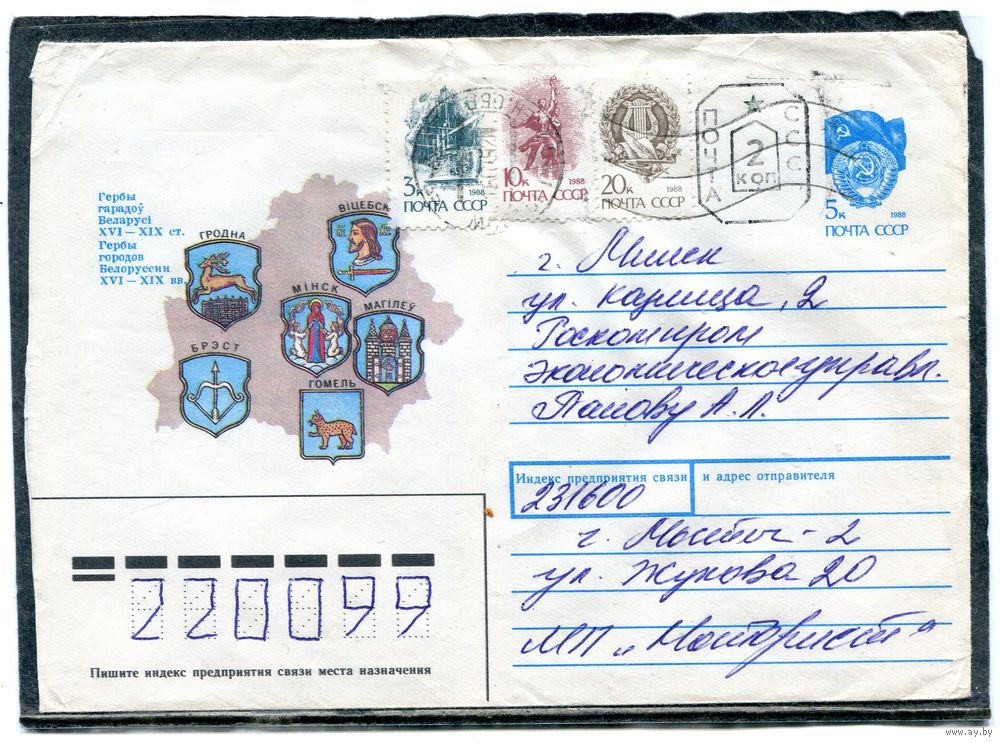 Гербы
гарадоў
Беларусі
XVI – XIX ст.
Гербы
городов
Белоруссии
XVI – XIX вв.
ГРОДНА
ВІЦЕБСК
МІНСК
МАГІЛЕЎ
БРЭСТ
ГОМЕЛЬ
3к 1988
ПОЧТА СССР
10к 1988
ПОЧТА СССР
20к 1988
ПОЧТА СССР
ПОЧТА
СССР
2
КОП
5к 1988
ПОЧТА СССР
г. Минск
ул. 2
Госкомпром
Экономическое управл.
Попову А. Л.
Индекс предприятия связи и адрес отправителя
231600
г. Мосты - 2
ул. Жукова 20
МП „
220099
Пишите индекс предприятия связи места назначения
www.ay.by